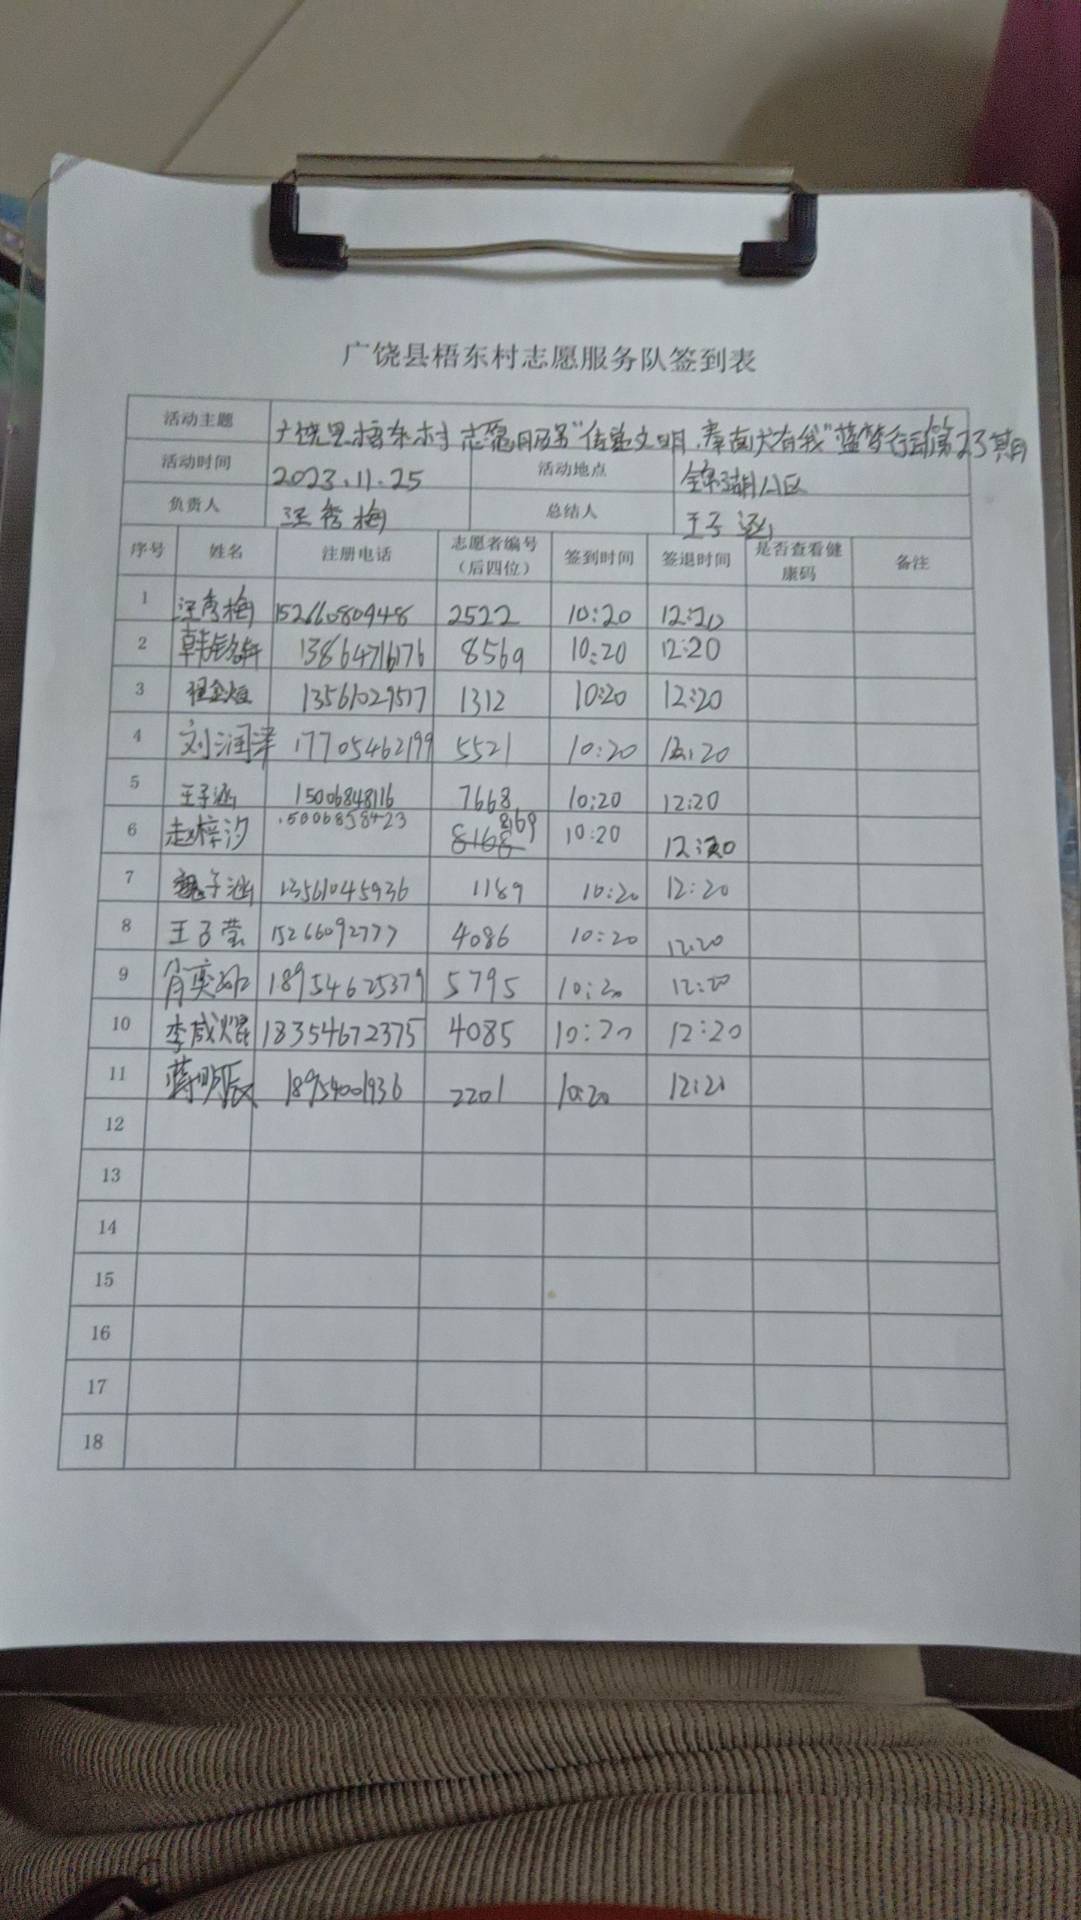 广饶县梧东村志愿服务队签到表
活动主题 广饶县梧东村志愿服务"传递文明,奉献有我"蓝梦行动第23期
活动时间 2023.11.25 活动地点 锦湖小区
负责人 汪秀梅 总结人 王子涵
序号 姓名 注册电话 志愿者编号(后四位) 签到时间 签退时间 是否查看健康码 备注
1 汪秀梅 152660809448 2522 10:20 12:20
2 韩铭轩 13864716176 8569 10:20 12:20
3 13561029517 1312 10:20 12:20
4 刘润泽 17705462199 5521 10:20 12:20
5 王子涵 15006848116 7668 10:20 12:20
6 赵梓汐 15006858423 8169 10:20 12:20
7 魏子涵 13561045936 1189 10:20 12:20
8 王子莹 15266092777 4086 10:20 12:20
9 肖奕 18954625379 5795 10:20 12:20
10 李成焜 18354672375 4085 10:20 12:20
11 蒋明辰 18954001936 2201 10:20 12:20
12
13
14
15
16
17
18